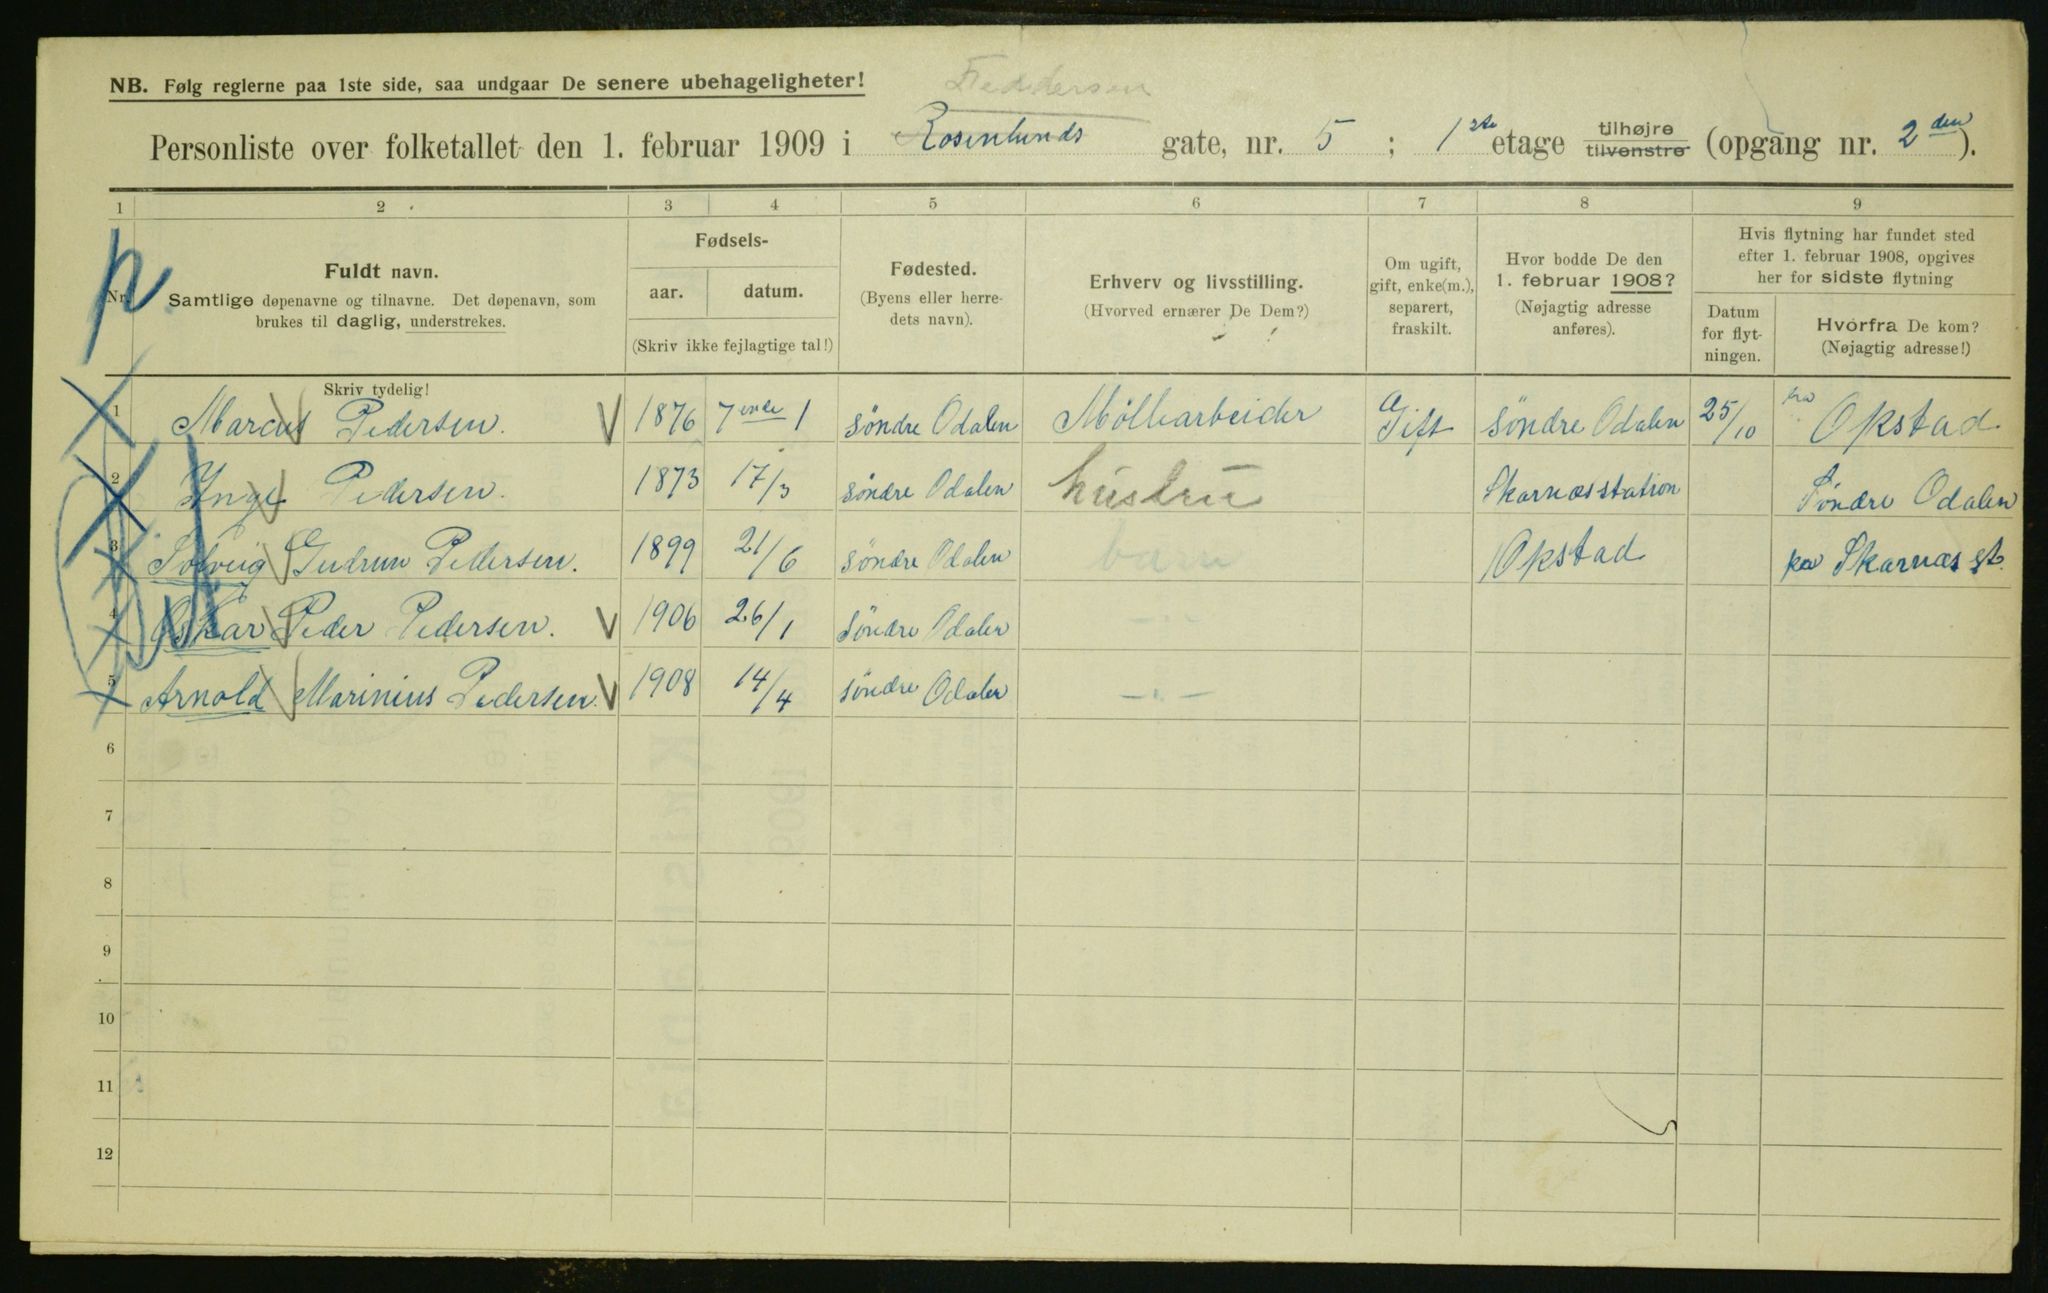 NB. Følg reglerne paa 1ste side, saa undgaar De senere ubehageligheter!
Feddersen
Personliste over folketallet den 1. februar 1909 i Rosenlunds gate, nr. 5 ; 1ste etage tilhøjre tilvenstre (opgang nr. 2den ).
1 2 3 4 5 6 7 8 9
Nr. Fuldt navn. Samtlige døpenavne og tilnavne. Det døpenavn, som brukes til daglig, understrekes.
Skriv tydelig!
Fødsels-
aar. datum.
(Skriv ikke fejlagtige tal!)
Fødested.
(Byens eller herre-
dets navn).
Erhverv og livsstilling.
(Hvorved ernærer De Dem?)
Om ugift,
gift, enke(m.),
separert,
fraskilt.
Hvor bodde De den
1. februar 1908?
(Nøjagtig adresse
anføres).
Hvis flytning har fundet sted
efter 1. februar 1908, opgives
her for sidste flytning
Datum
for flyt-
ningen.
Hvorfra De kom?
(Nøjagtig adresse!)
1 Marcus Pedersen. 1876 7ende 1 Söndre Odalen Möllearbeider Gift Söndre Odalen 25/10 fra Opstad
2 Inga Pedersen. 1873 17/3 Söndre Odalen hustru Skarnæsstation Söndre Odalen
3 Solveig Gudrun Pedersen. 1899 21/6 Söndre Odalen barn Opstad pr Skarnæs st.
4 Oskar Peder Pedersen. 1906 26/1 Söndre Odalen -"-
5 Arnold Marinius Pedersen. 1908 14/4 Söndre Odalen -"-
6
7
8
9
10
11
12